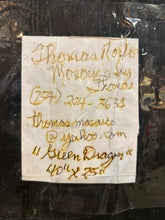 Thomas
Mosaics by
Thomas
(254)
thomasmosaics
@yahoo.com
"Green Dragon"
40" X 25"